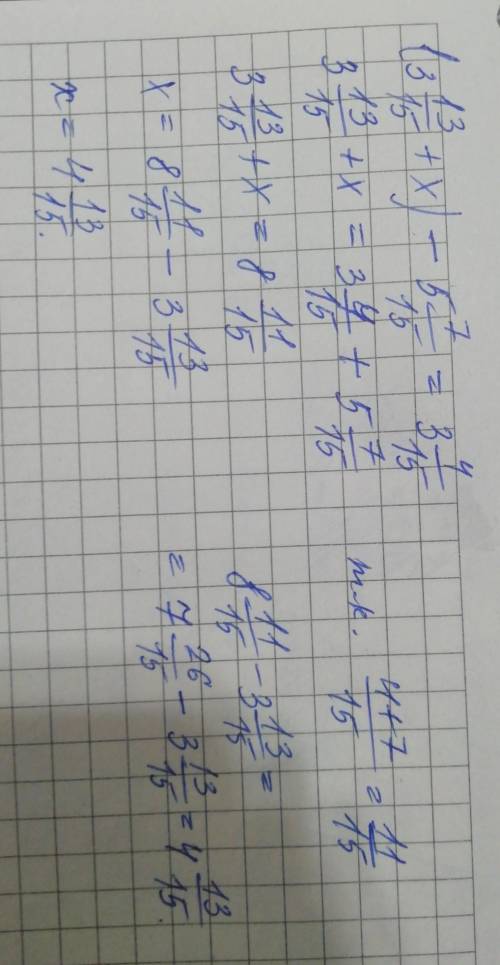 (3 13/15 + x) - 5 7/15 = 3 4/15
3 13/15 + x = 3 4/15 + 5 7/15
т.к. (4+7)/15 = 11/15
3 13/15 + x = 8 11/15
8 11/15 - 3 13/15 =
x = 8 11/15 - 3 13/15
= 7 26/15 - 3 13/15 = 4 13/15.
x = 4 13/15.